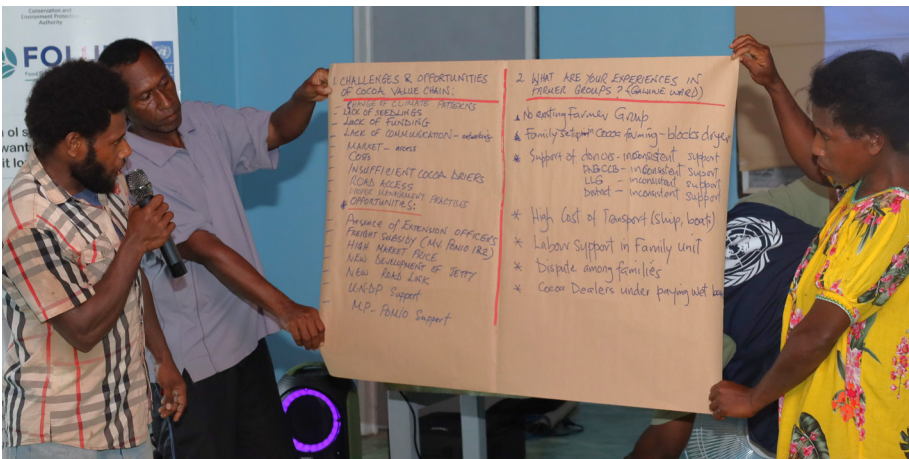 Conservation and
Environment Protection
Authority
FOLU
1. CHALLENGES & OPPORTUNITIES
OF COCOA VALUE CHAIN:
- CHANGE OF CLIMATE PATTERNS
- LACK OF SEEDLINGS
- LACK OF FUNDING
LACK OF COMMUNICATION - networking
MARKET - access
COSTS
INSUFFICIENT COCOA DRIERS
ROAD ACCESS
PROPER MANAGEMENT PRACTISES
* OPPORTUNITIES:
Presence of EXTENSION OFFICERS
FREIGHT SUBSIDY (MV. POMIO IRE)
HIGH MARKET PRICE
NEW DEVELOPMENT OF JETTY
NEW ROAD LINK
UNDP Support
MP - POMIO Support
2. WHAT ARE YOUR EXPERIENCES IN
FARMER GROUPS? WARD)
No existing Farmer Group
Family Cocoa farming - blocks dryer
* Support of donors - inconsistent support
- inconsistent support
LLG - inconsistent support
District - inconsistent support
* High Cost of Transport (ship, boats)
* Labour Support in Family Unit
* Dispute among families
* Cocoa Dealers under paying wet